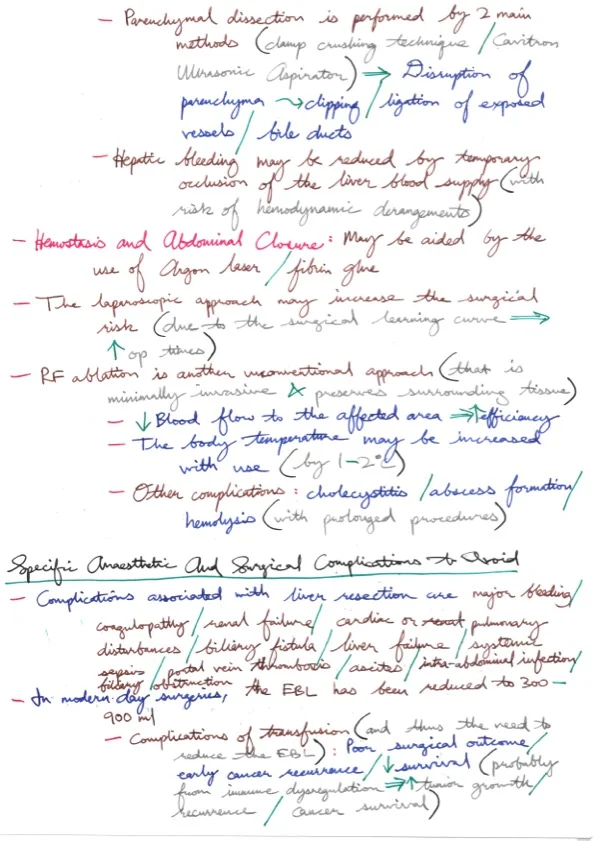 - Parenchymal dissection is performed by 2 main
methods (clamp crushing technique / Cavitron
Ultrasonic Aspirator) ⇒ Disruption of
parenchyma → clipping / ligation of exposed
vessels / bile ducts
- Hepatic bleeding may be reduced by temporary
occlusion of the liver blood supply (with
risk of hemodynamic derangements)
- Hemostasis and Abdominal Closure: May be aided by the
use of Argon laser / fibrin glue
- The laparoscopic approach may increase the surgical
risk (due to the surgical learning curve ⇒
↑ op times)
- RF ablation is another unconventional approach (that is
minimally invasive & preserves surrounding tissue)
- ↓ Blood flow to the affected area ⇒ ↑ efficiency
- The body temperature may be increased
with use (by 1-2°C)
- Other complications: cholecystitis / abscess formation/
hemolysis (with prolonged procedures)
Specific Anaesthetic And Surgical Complications to Avoid
- Complications associated with liver resection are major bleeding/
coagulopathy / renal failure / cardiac or pulmonary
disturbances / biliary fistula / liver failure / systemic
sepsis / portal vein thrombosis / ascites / intra-abdominal infection/
biliary obstruction
- In modern-day surgeries, the EBL has been reduced to 300-
900 ml
- Complications of transfusion (and thus the need to
reduce the EBL): Poor surgical outcome/
early cancer recurrence / ↓ survival (probably
from immune dysregulation ⇒ ↑ tumor growth/
recurrence / cancer survival)